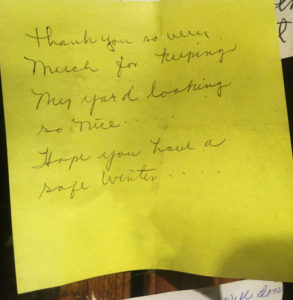 Thank you so very
Much for keeping
My yard looking
so nice.....
Hope you have a
safe Winter.....